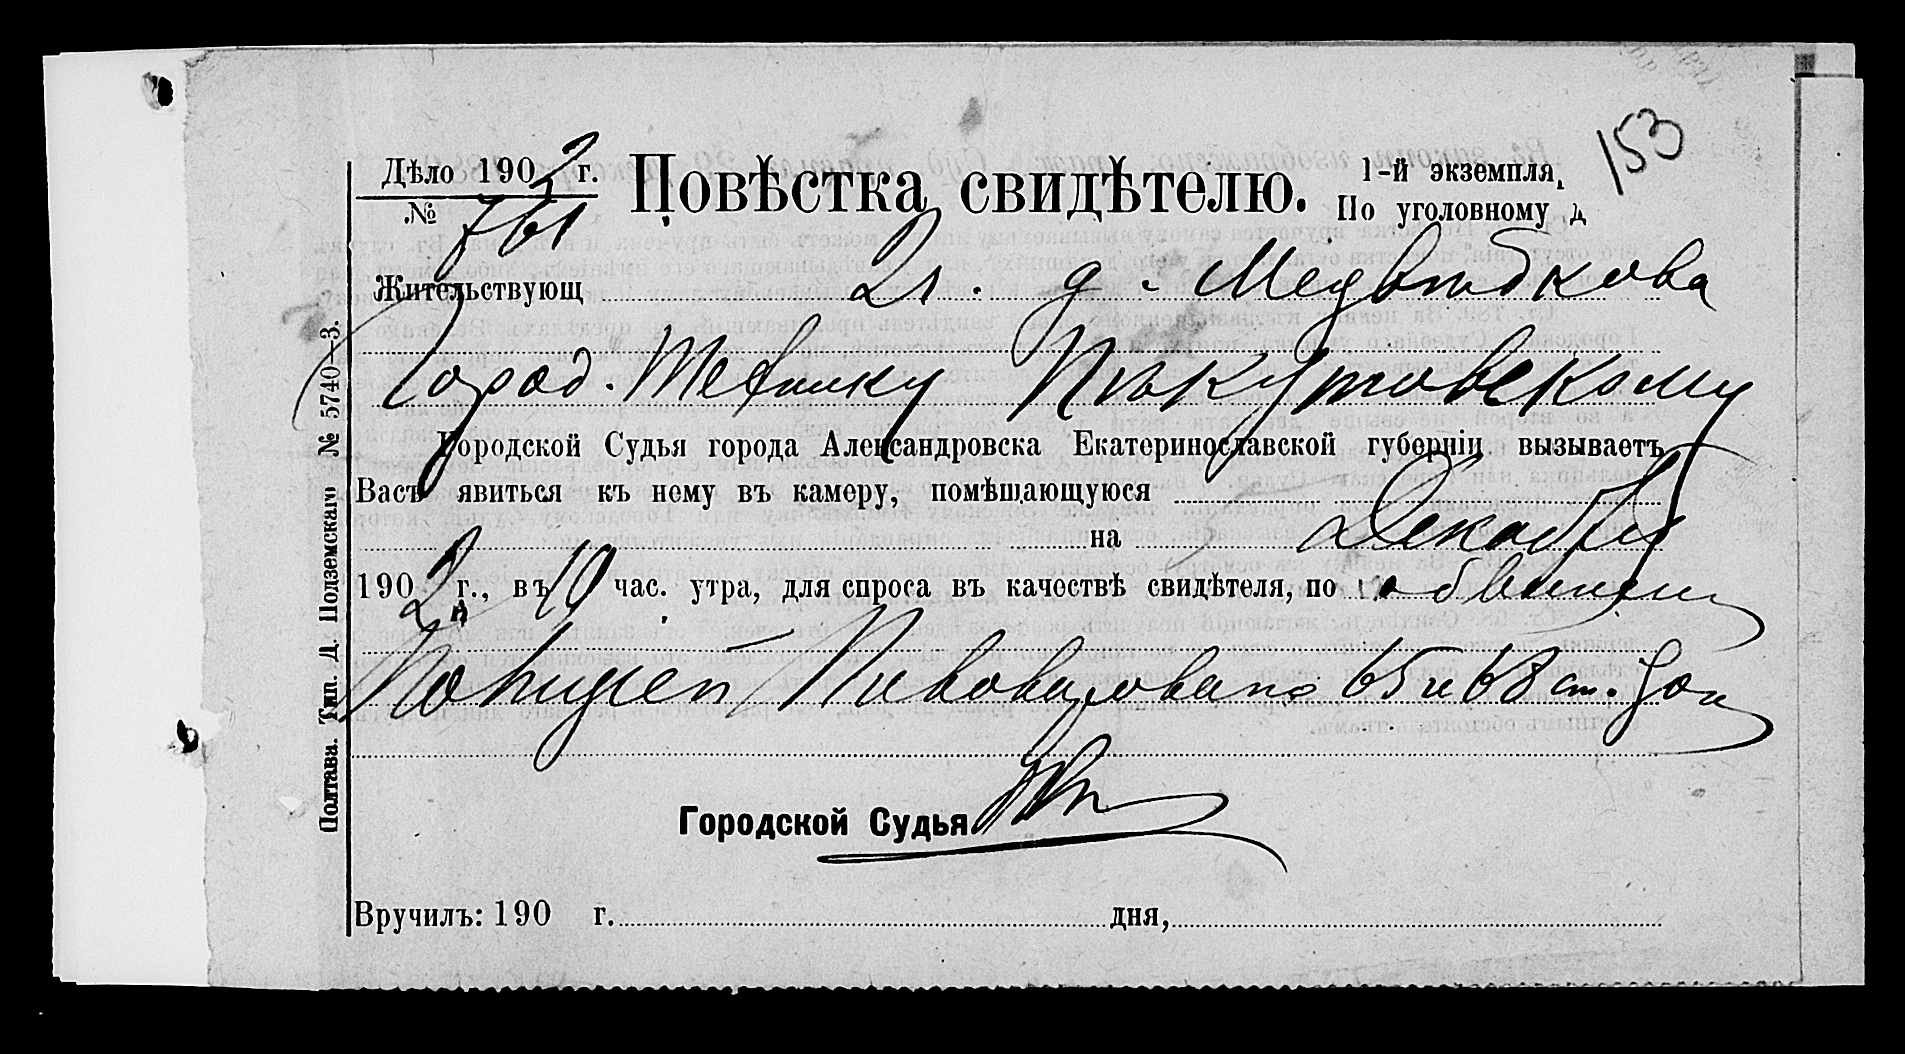 153
Дѣло 1902 г.
№ 761
Повѣстка свидѣтелю.
1-й экземпля
По уголовному д
Жительствующ 21. д. Медвѣдкова
Город. Технику
Городской Судья города Александровска Екатеринославской губерніи вызываетъ
Васъ явиться къ нему въ камеру, помѣщающуюся
на Декабря
1902 г., въ 10 час. утра, для спроса въ качествѣ свидѣтеля, по обвинен
Пивоварова по 65 и 68 ст.
Городской Судья
Вручилъ: 190 г. дня,
Полтава. Тип. Д. Подземскаго № 5740—3.